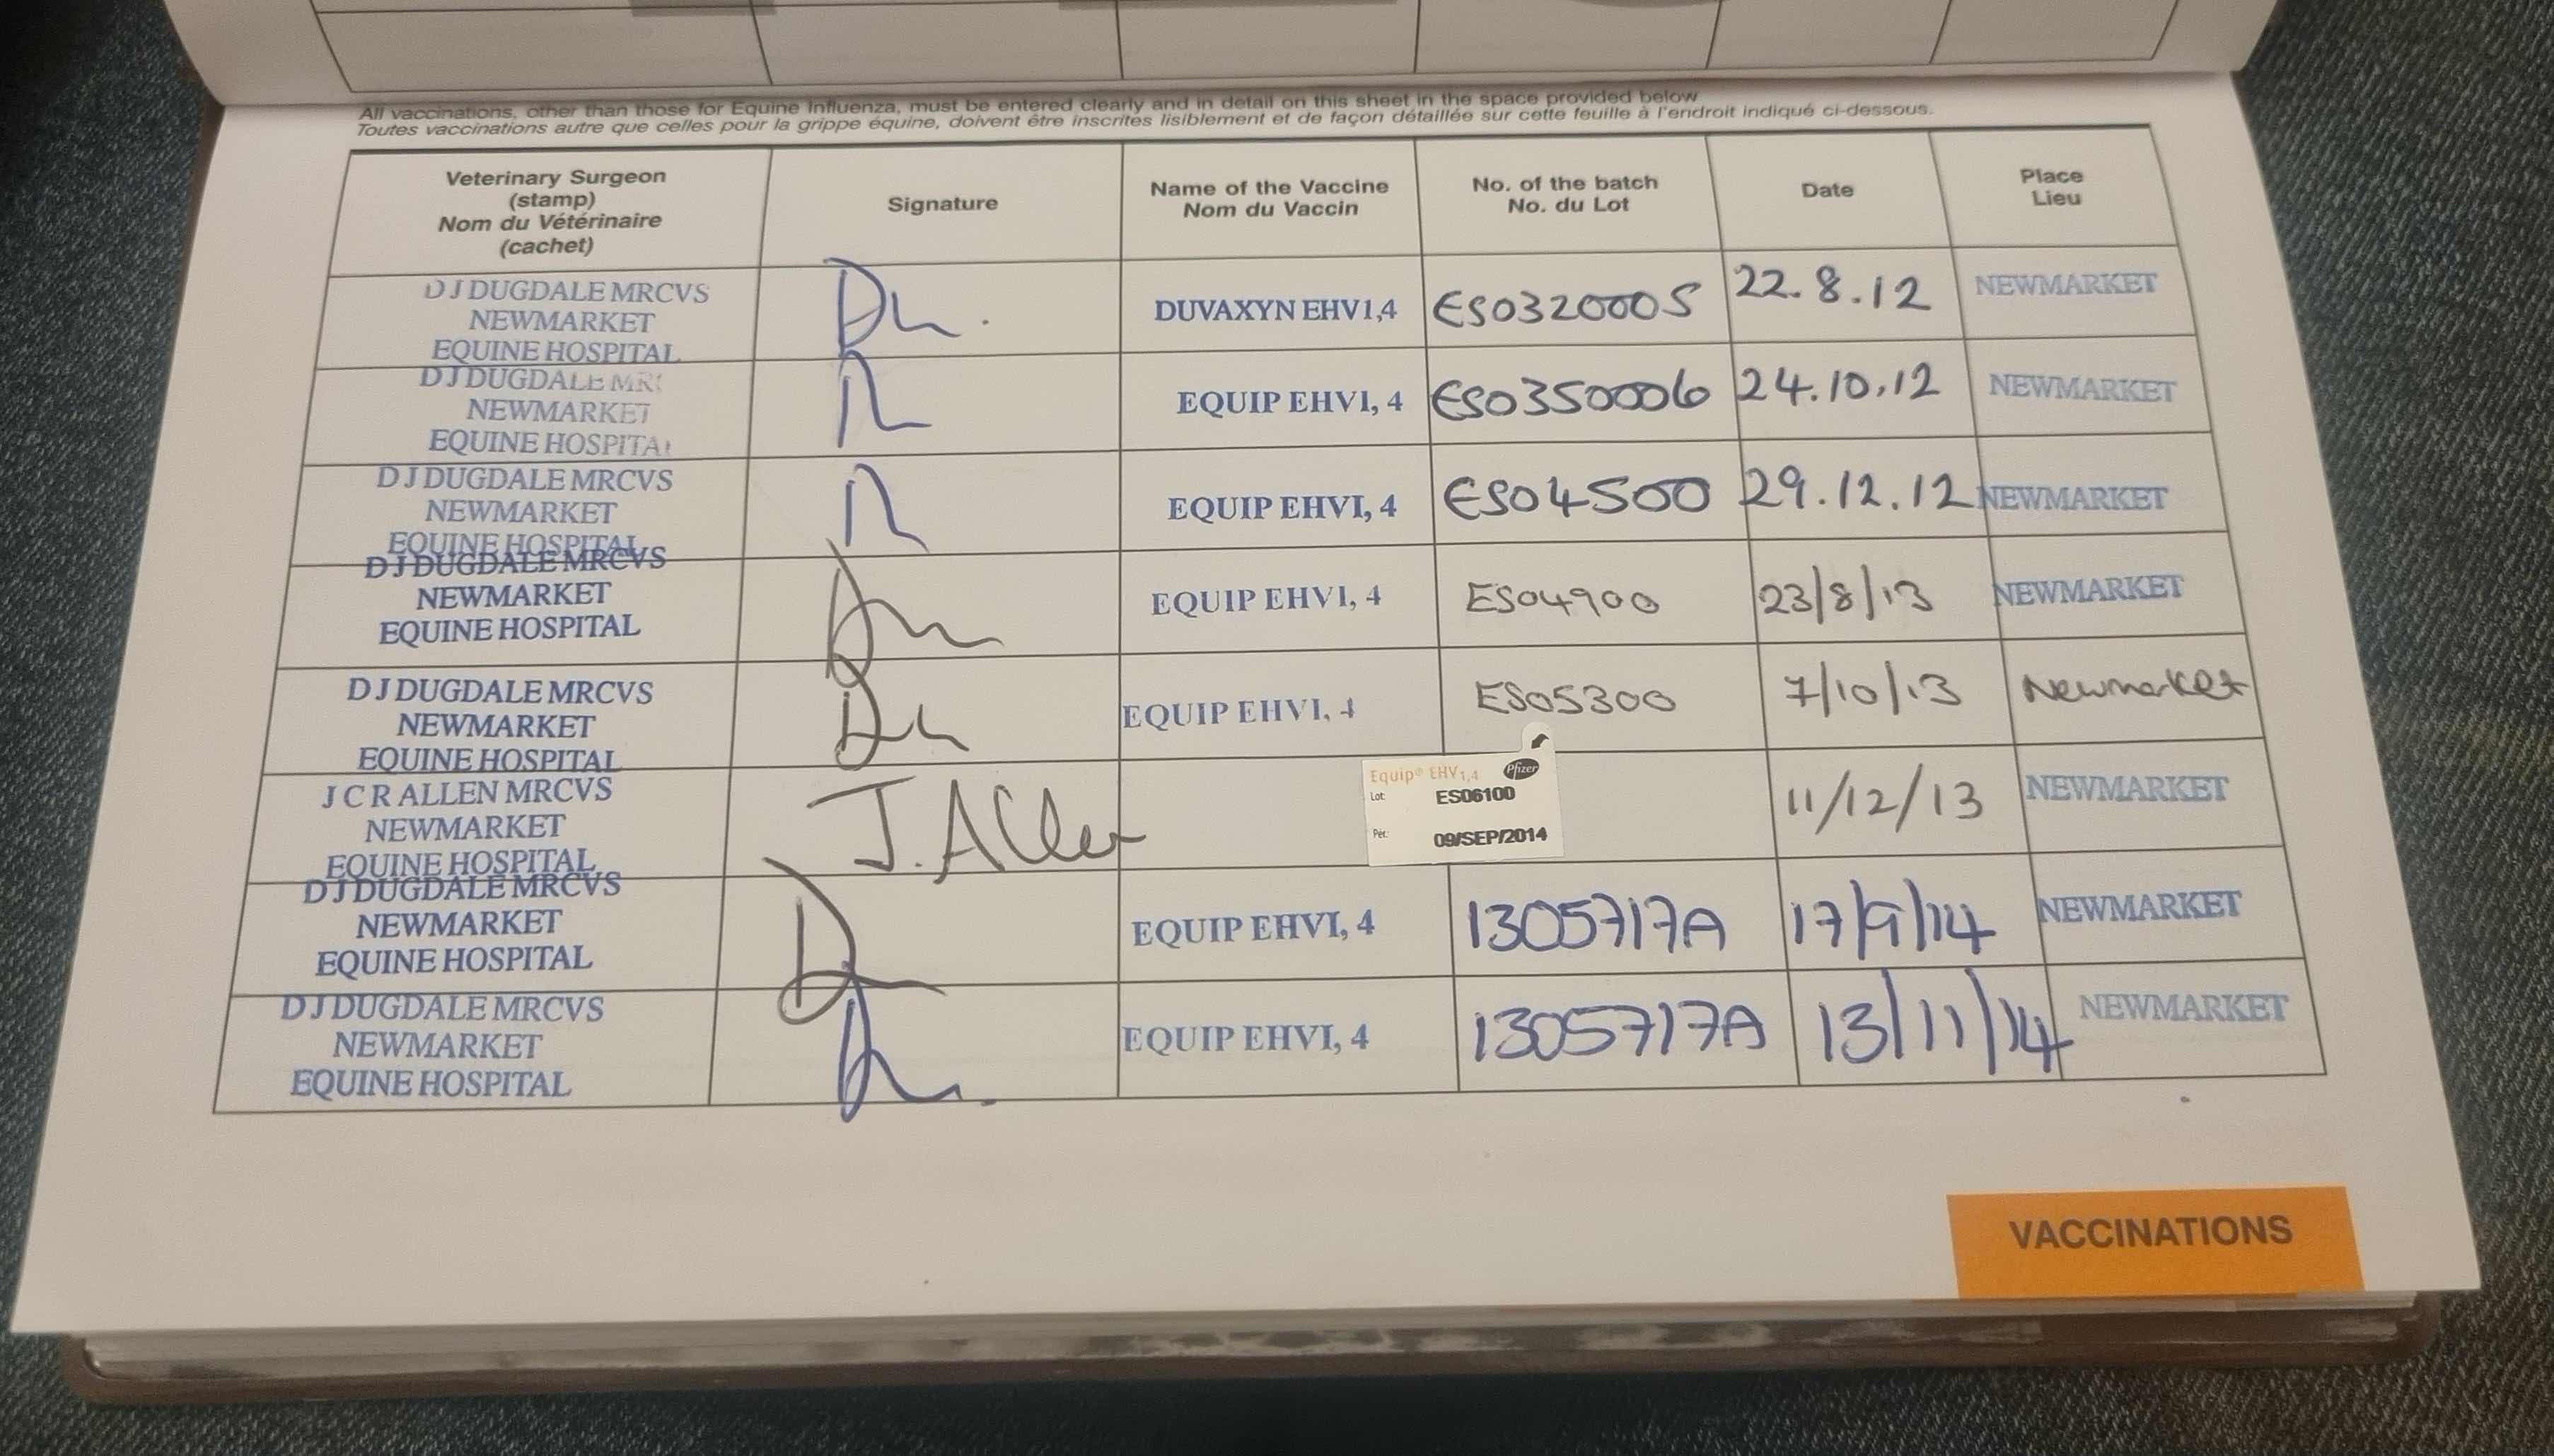 All vaccinations, other than those for Equine Influenza, must be entered clearly and in detail on this sheet in the space provided below
Toutes vaccinations autre que celles pour la grippe équine, doivent être inscrites lisiblement et de façon détaillée sur cette feuille à l'endroit indiqué ci-dessous.
Veterinary Surgeon
(stamp)
Nom du Vétérinaire
(cachet)
Signature
Name of the Vaccine
Nom du Vaccin
No. of the batch
No. du Lot
Date
Place
Lieu
D J DUGDALE MRCVS
NEWMARKET
EQUINE HOSPITAL
DUVAXYN EHV1,4
ES032000S
22.8.12
NEWMARKET
D J DUGDALE MRC
NEWMARKET
EQUINE HOSPITAL
EQUIP EHVI, 4
ES0350006
24.10.12
NEWMARKET
D J DUGDALE MRCVS
NEWMARKET
EQUINE HOSPITAL
EQUIP EHVI, 4
ES04500
29.12.12
NEWMARKET
D J DUGDALE MRCVS
NEWMARKET
EQUINE HOSPITAL
EQUIP EHVI, 4
ES04900
23/8/13
NEWMARKET
D J DUGDALE MRCVS
NEWMARKET
EQUINE HOSPITAL
EQUIP EHVI, 4
ES05300
7/10/13
Newmarket
J C R ALLEN MRCVS
NEWMARKET
EQUINE HOSPITAL
J. Allen
Equip® EHV1,4 Pfizer
Lot: ES06100
Per.: 09/SEP/2014
11/12/13
NEWMARKET
D J DUGDALE MRCVS
NEWMARKET
EQUINE HOSPITAL
EQUIP EHVI, 4
1305717A
17/9/14
NEWMARKET
D J DUGDALE MRCVS
NEWMARKET
EQUINE HOSPITAL
EQUIP EHVI, 4
1305717A
13/11/14
NEWMARKET
VACCINATIONS